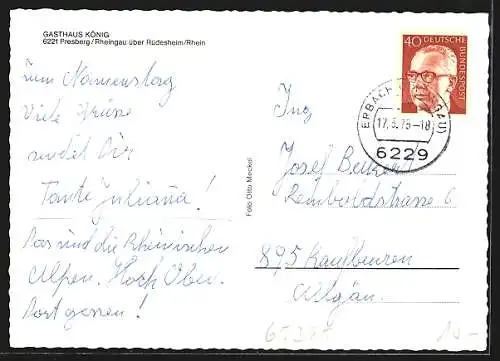 GASTHAUS KÖNIG
6221 Presberg/Rheingau über Rüdesheim/Rhein
Zum Namenstag
Viele Grüsse
sendet Dir
Tante Juliana!
Das sind die Rheinischen
Alpen. Hoch Oben.
Dort gessen!
Foto Otto Meckel
40 DEUTSCHE BUNDESPOST
ERBACH
17.3.75-18
6229
Ing
Josef Beikert
Remboldstrasse 6
895 Kaufbeuren
Allgäu.
10-